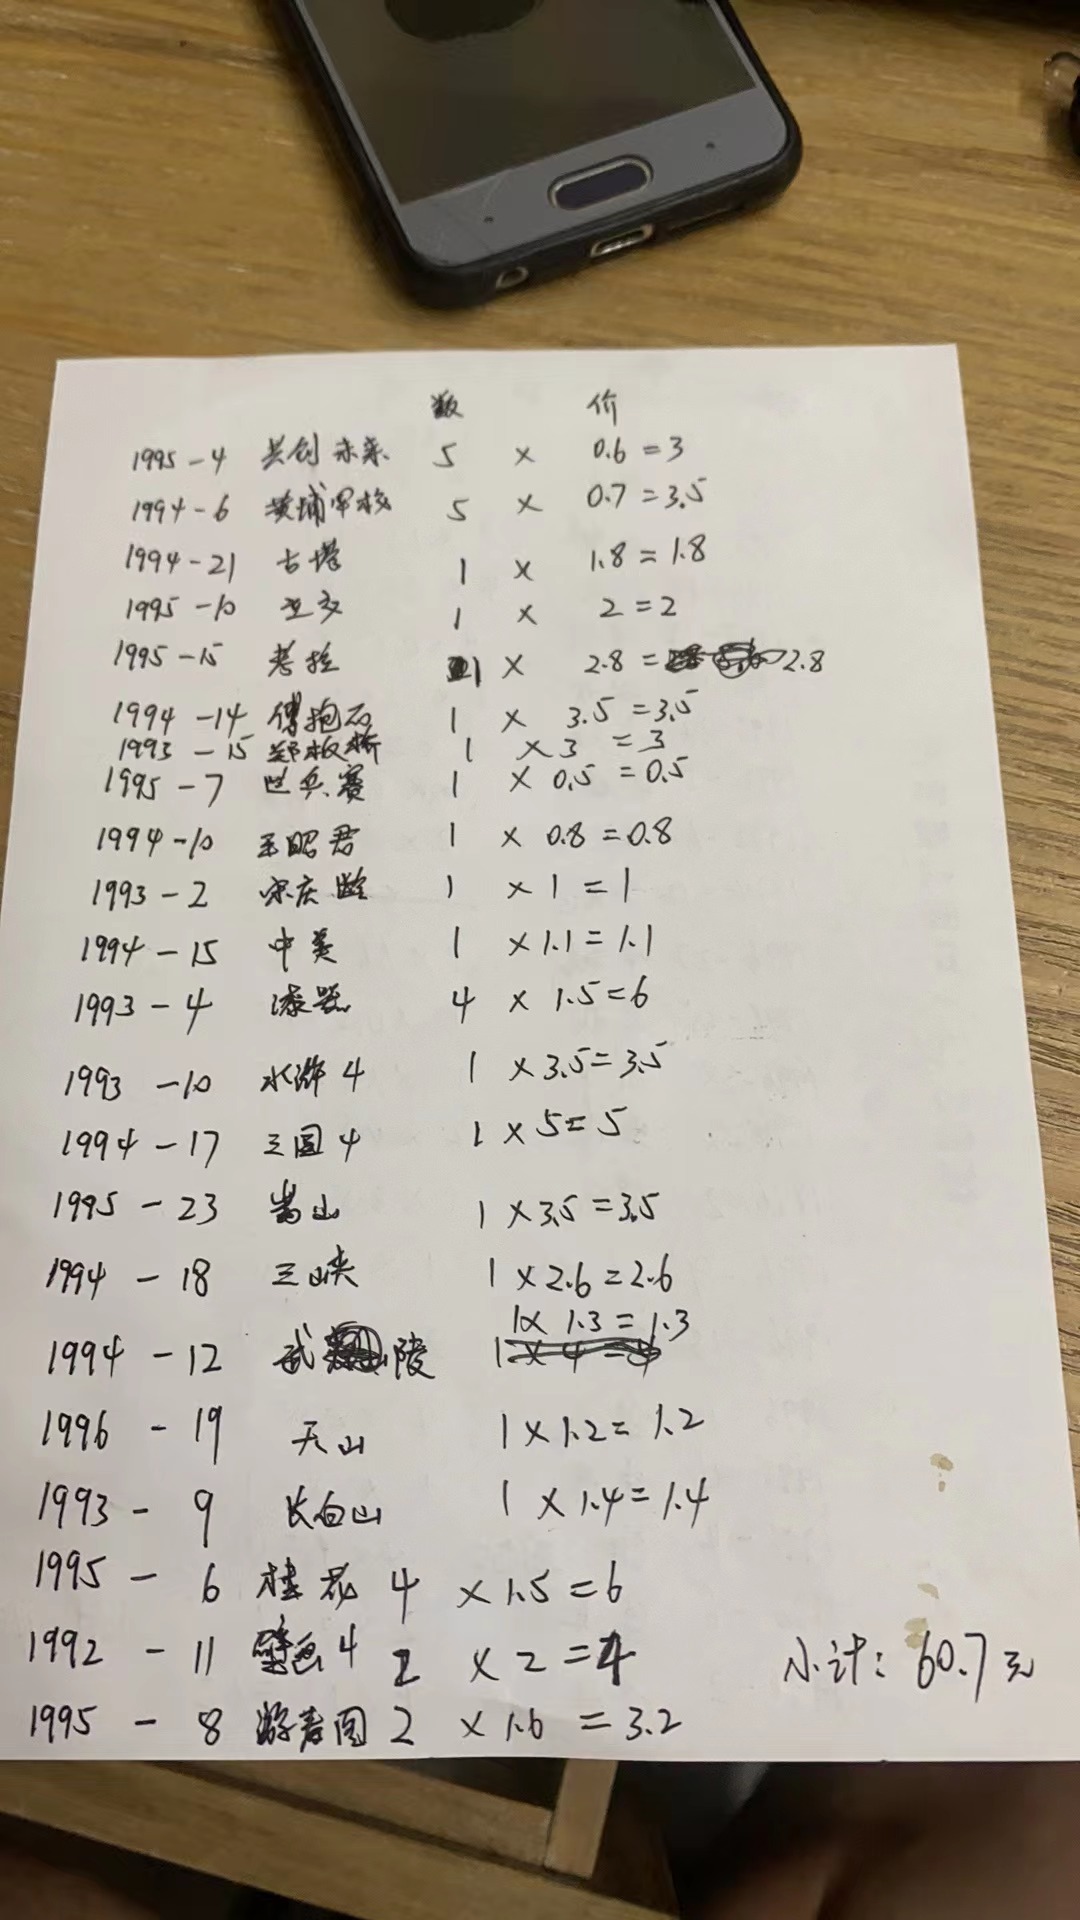 数 价
1995-4 共创未来 5 × 0.6=3
1994-6 黄埔军校 5 × 0.7=3.5
1994-21 古塔 1 × 1.8=1.8
1995-10 卫交 1 × 2=2
1995-15 考拉 1 × 2.8= 2.8
1994-14 傅抱石 1 × 3.5=3.5
1993-15 郑板桥 1 ×3 =3
1995-7 世乒赛 1 × 0.5=0.5
1994-10 王昭君 1 × 0.8=0.8
1993-2 宋庆龄 1 × 1=1
1994-15 中美 1 ×1.1=1.1
1993-4 漆器 4 × 1.5=6
1993-10 水浒4 1 ×3.5=3.5
1994-17 三国4 1 ×5=5
1995-23 嵩山 1 ×3.5=3.5
1994-18 三峡 1 ×2.6=2.6
1× 1.3=1.3
1994-12 武陵 1 × 4 =4
1996-19 天山 1 ×1.2=1.2
1993-9 长白山 1 ×1.4=1.4
1995-6 桂花 4 ×1.5=6
1992-11 壁画4 2 ×2=4 小计:60.7元
1995-8 游春图 2 ×1.6=3.2